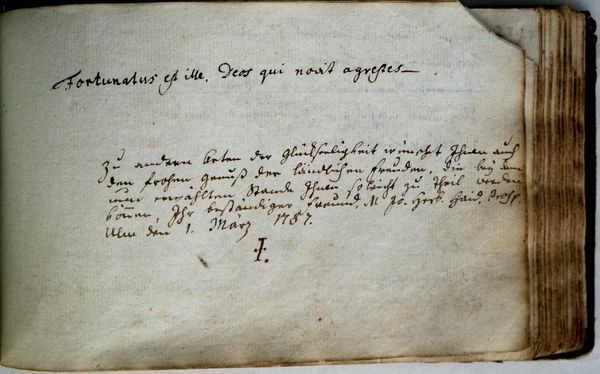 Fortunatus est ille, Deos qui novit agrestes —.
Zu andern Arten der Glückseeligkeit wünscht Ihnen auch
den frohen Genuß der ländlichen Freuden, die bey dem
nun erwählten Stande Ihnen so leicht zu Theil werden
können, Ihr beständiger Freund, M. Jo. Herk. Haid, Prof.
Ulm den 1. März 1787.